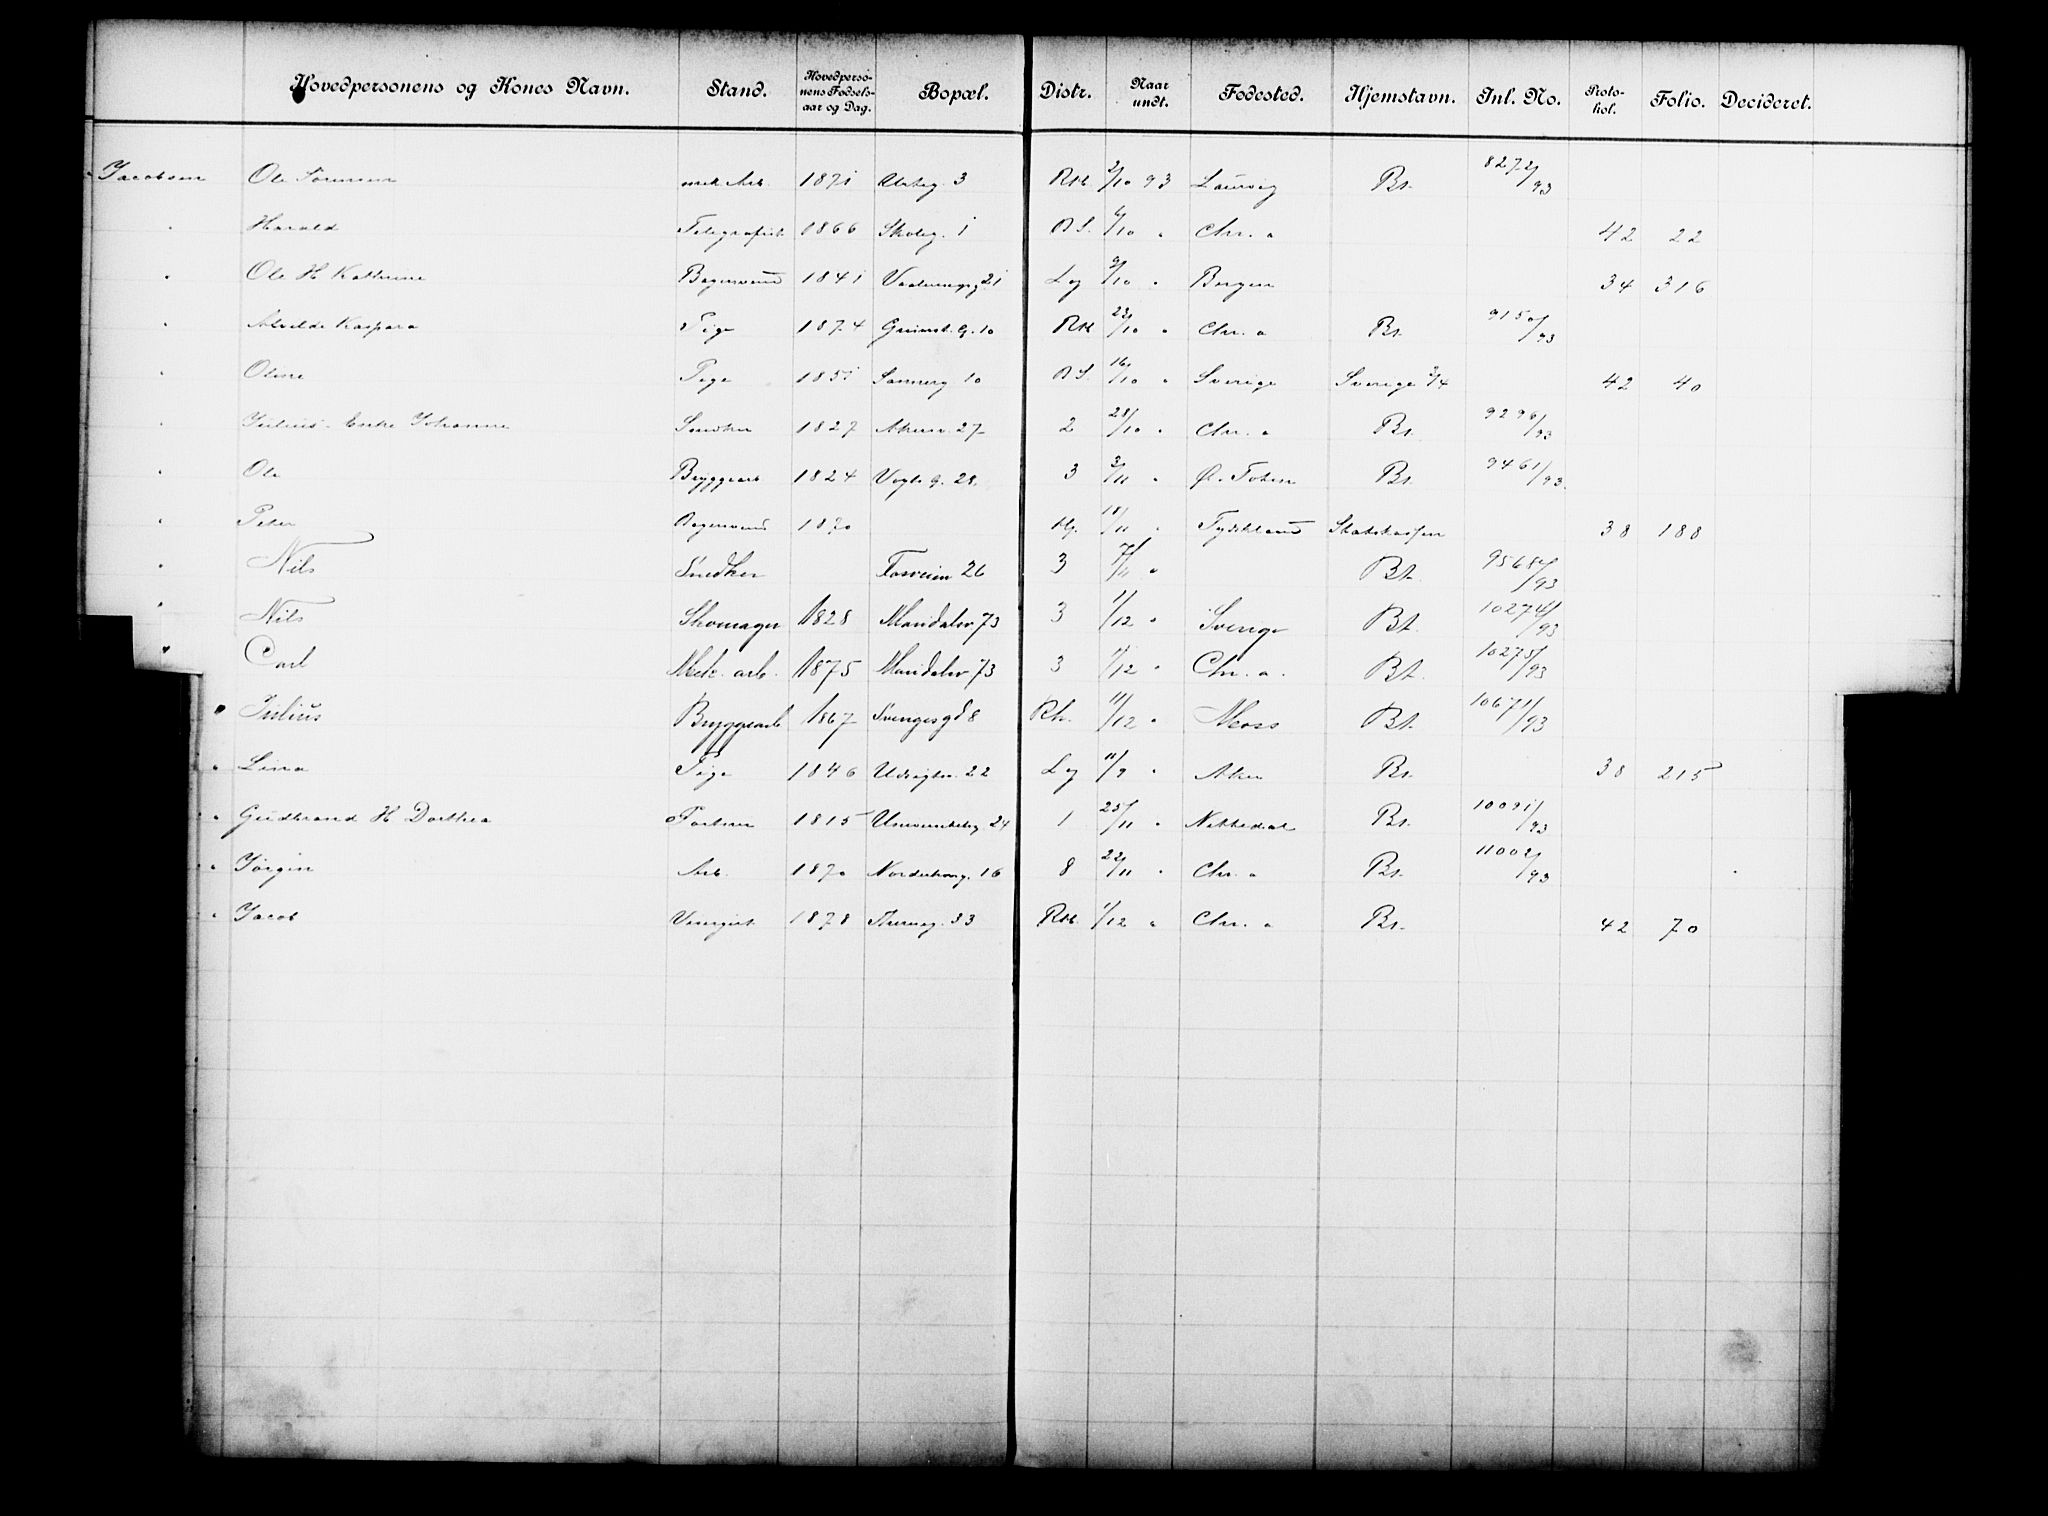 Hovedpersonens og Kones Navn. Stand. Hovedperso-nens Fødsels-aar og Dag. Bopæl. Distr. Naar undt. Fødested. Hjemstavn. Inl. No. Proto-kol. Folio. Decideret.
Jacobsen Ole mek Arb. 1871 3 Rtk. 2/10 93 Laurvig Bt. 8272/93
" Harald Telegrafist 1866 Skoleg. 1 B S. 6/10 " Chr. a 42 22
" Ole H Kathrine Bagersvend 1841 21 Lg 9/10 " Bergen 34 316
" Alvilde Kaspara Pige 1874 10 Rtk 23/10 " Chr. a Bt. 9150/93
" Oline Pige 1851 Sannerg 10 B S. 16/10 " Sverige Sverige 3/4 42 40
" Julius Enke Johanne Snedker 1827 Akersv. 27 2 28/10 " Chr. a Bt. 9296/93
" Ole Bryggearb 1824 Vogts g. 28. 3 3/11 " Ø. Toten Bt. 9461/93.
" Peter Bagersvend 1870 18/11 " Tydskland Statskassen 38 188
" Nils Snedker 26 3 7/11 " Bt. 9568/93
" Nils Skomager 1828 Maridalsv 73 3 1/12 " Sverige Bt. 10274/93
" Carl Mek. arb. 1875 Maridalsv 73 3 1/12 " Chr. a. Bt. 10275/93
" Julius Bryggearb 1867 Svenges gd 8 Rk. 11/12 " Moss Bt. 10671/93
" Lina Pige 1846 Udsigtsv. 22 Lg 11/9 " Aker Bt. 38 215
" Gudbrand H Dorthea 1815 Universitetsg 24 1 25/11 " Nittedal Bt. 10091/93
" Jørgin Arb. 1870 16 8 22/11 " Chr. a Bt. 11002/93
" Jacob Visergut 1878 33 Rtk. 1/12 " Chr. a Bt. 42 70